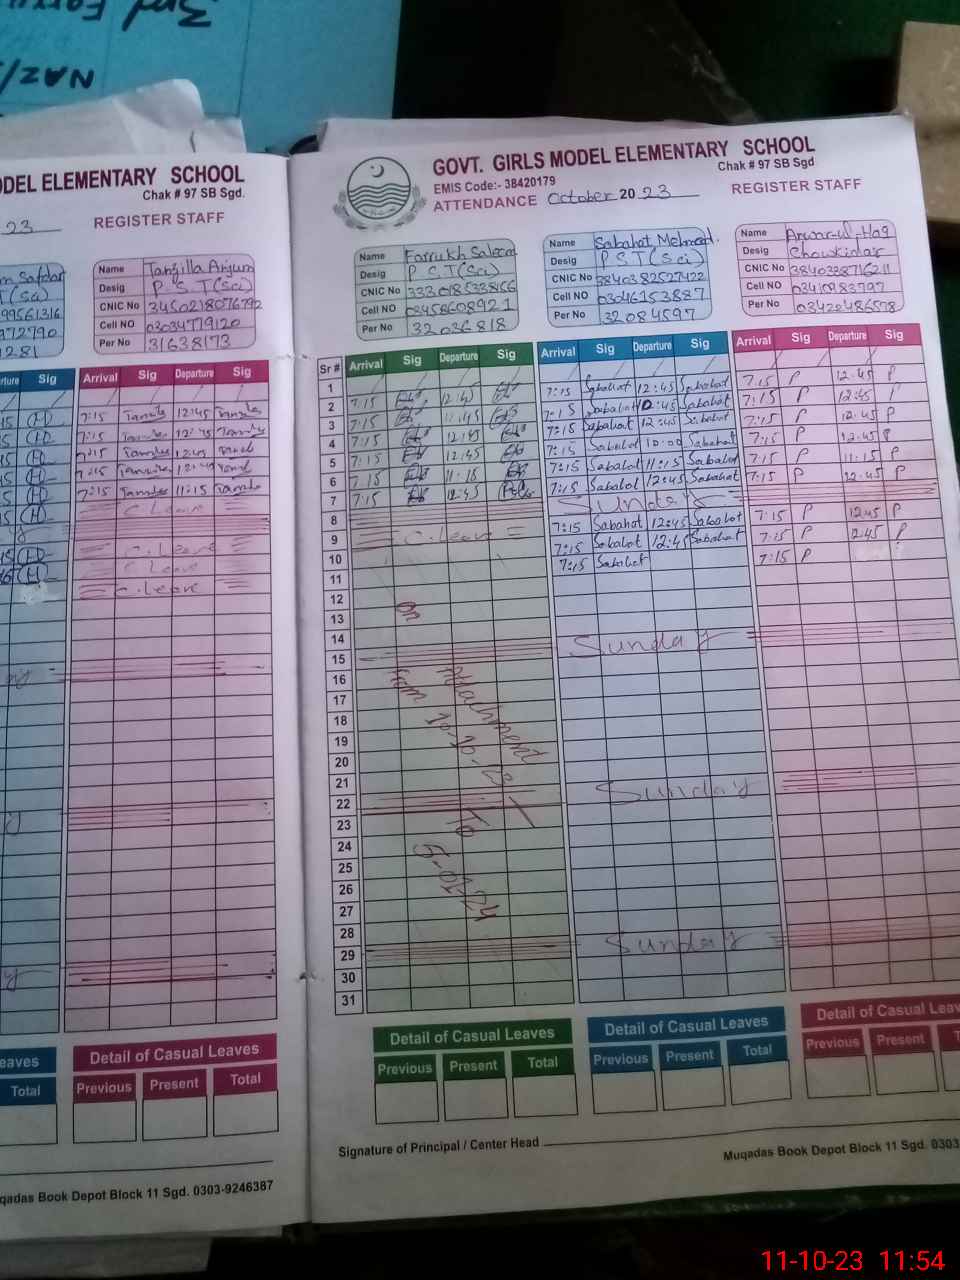 3rd
NAZ
ODEL ELEMENTARY SCHOOL
Chak # 97 SB Sgd.
23
REGISTER STAFF
Name Tanzilla Anjum
Desig P. S. T (Sci)
CNIC No 3450218076792
Cell NO 03034779120
Per No 31638173
99561316
972790
1281
rture Sig
Arrival Sig Departure Sig
7:15 Tanzila 12:45 Tanzila
7:15 Tanzila 12:45 Tanzila
7:15 Tanzila 12:45
7:15 Tanzila 12:45
7:15 Tanzila 11:15 Tanzila
C. Leave
C. Leave
C. Leave
C. Leave
eaves
Total
Detail of Casual Leaves
Previous Present Total
uqadas Book Depot Block 11 Sgd. 0303-9246387
GOVT. GIRLS MODEL ELEMENTARY SCHOOL
Chak # 97 SB Sgd
EMIS Code:- 38420179
ATTENDANCE October 2023
REGISTER STAFF
Name Farrukh Saleem
Desig P. S. T (Sci)
CNIC No 3330185338156
Cell NO 03458608921
Per No 32036818
Name Sabahat Mehmood.
Desig P. S. T (Sci)
CNIC No 3840382527422
Cell NO 03046153887
Per No 32084597
Name Anwar-ul-Haq
Desig Chowkidar
CNIC No 3840338716211
Cell NO
Per No
Sr # Arrival Sig Departure Sig Arrival Sig Departure Sig Arrival Sig Departure Sig
1
2 7:15 12:45 7:15 Sabahat 12:45 Sabahat 7:15 P 12:45 P
3 7:15 12:45 7:15 Sabahat 12:45 Sabahat 7:15 P 12:45 P
4 7:15 12:45 7:15 Sabahat 12:45 Sabahat 7:15 P 12:45 P
5 7:15 12:45 7:15 Sabahat 10:00 Sabahat 7:15 P 12:45 P
6 7:15 11:15 7:15 Sabahat 11:15 Sabahat 7:15 P 11:15 P
7 7:15 12:45 7:15 Sabahat 12:45 Sabahat 7:15 P 12:45 P
8 Sunday
9 C. Leave 7:15 Sabahat 12:45 Sabahat 7:15 P 12:45 P
10 7:15 Sabahat 12:45 Sabahat 7:15 P 12:45 P
11 7:15 Sabahat 7:15 P
12
13 on
14
15 Sunday
16 Attachment
17 from 10-10-23
18
19
20
21
22 Sunday
23 To
24
25 5-01-24
26
27
28
29 Sunday
30
31
Detail of Casual Leaves
Previous Present Total
Detail of Casual Leaves
Previous Present Total
Detail of Casual Leaves
Previous Present T
Signature of Principal / Center Head
Muqadas Book Depot Block 11 Sgd. 0303
11-10-23 11:54